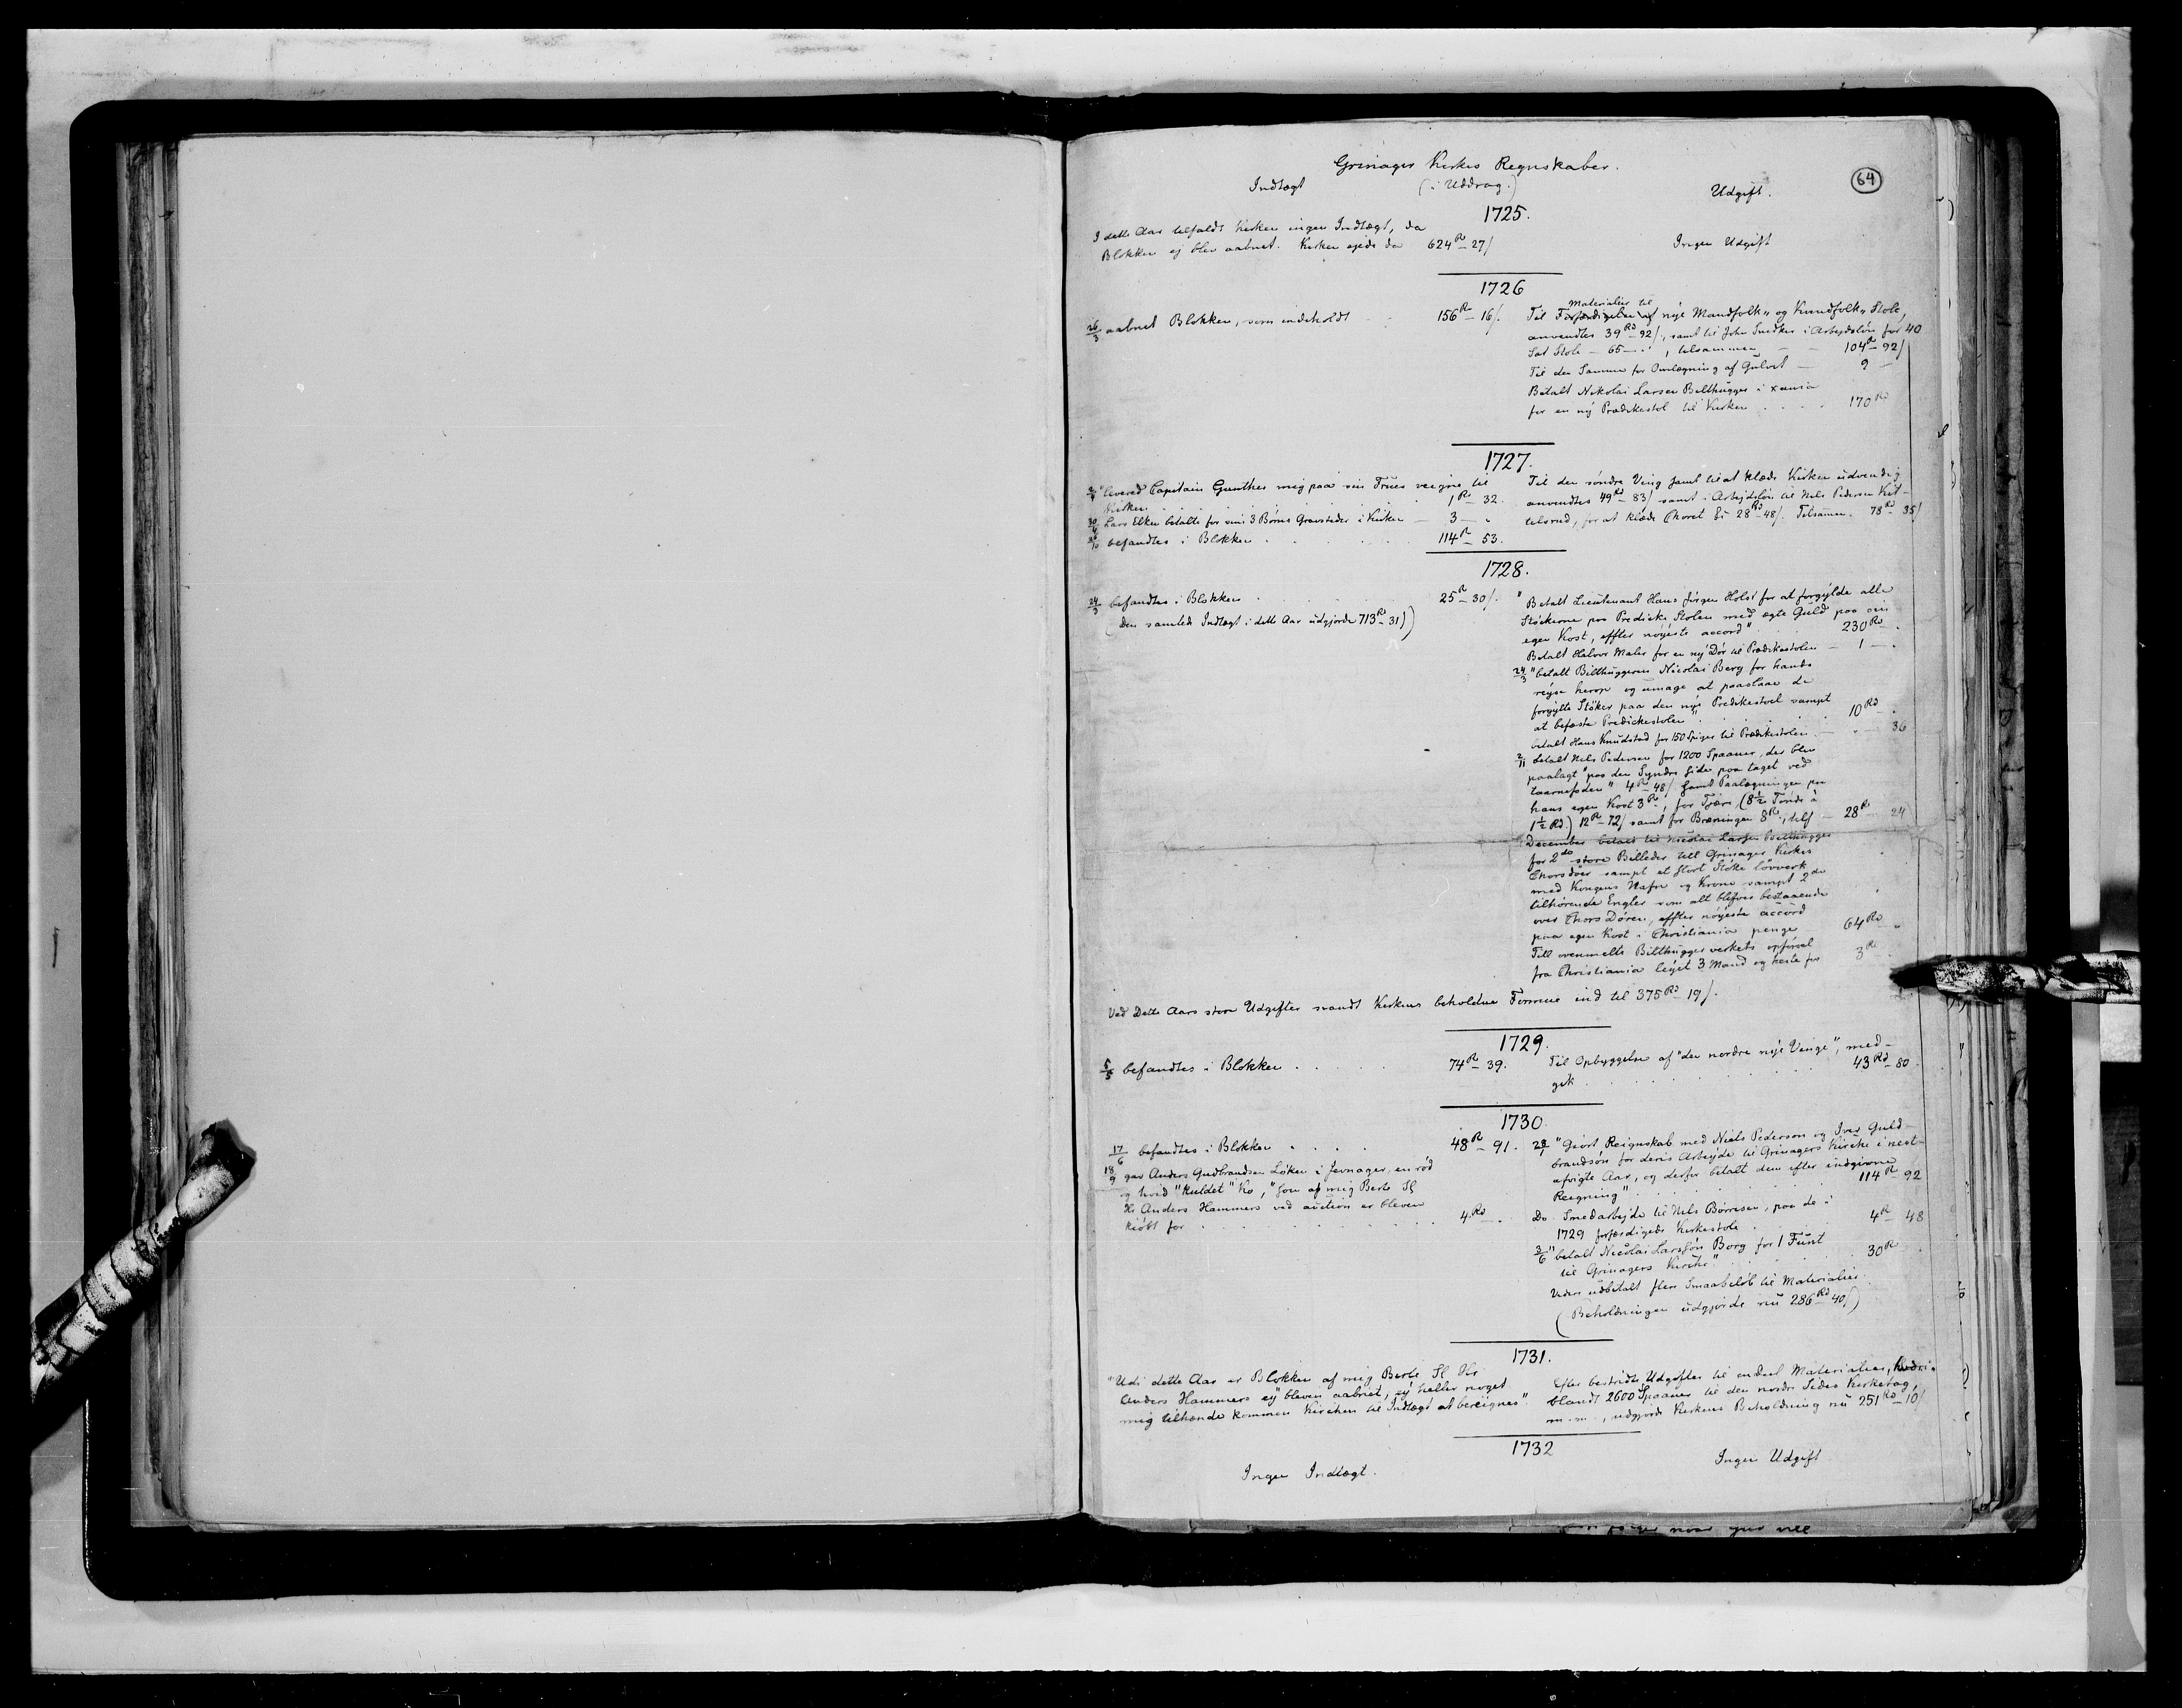 Grinager Kirkes Regnskaber.
64
Indtægt (i Uddrag.) Udgift.
1725.
I dette Aar tilfaldt Kirken ingen Indtægt, da
Blokken ej blev aabnet. Kirken ejede da 624 R - 27/
Ingen Udgift
1726
26/3 aabnet Blokken, som indeholdt 156 Rd - 16/.
Materialier til
Til Forfærdigelsen af nye Mandfolk„ og Kvindfolk„ Stole,
anvendtes 39 Rd - 92/, samt til John Snedker i Arbejdsløn for 40
Sæt Stole - 65 - „ , tilsammen 104 R - 92/
Til den Samme for Omlægning af Gulvet - 9 -
Betalt Nikolai Larsen Bilthugger i Xania
for en ny Prædikestol til Kirken . . . . 170 Rd
1727.
2/4 "levered Capitain Gunther mig paa sin Frues veigne til
Kirken . . . . . 1 Rd - 32.
30/6 Lars Elken betalte for sine 3 Børns Gravsteder i Kirken - 3 - „
26/10 befandtes i Blokken . . . . . 114 R - 53.
Til den søndre Ving samt til at klæde Kirken udvendig
anvendtes 49 Rd - 83/ samt i Arbejdsløn til Nels Pedersen Kit-
telsrud, for at klæde Choret &c 28 Rd - 48/. Tilsamen. 78 Rd - 35/
1728.
24/3 befandtes i Blokken . . . . 25 R - 30/.
(Den samlede Indtægt i dette Aar udgjorde 713 Rd - 31/)
" Betalt Lieutenant Hans Jørgen Holst for at forgylde alle
Støckerne paa Predicke Stolen med egte Guld paa sin
egen Kost, effter nøyeste accord" . . 230 Rd - .
Betalt Halvor Maler for en ny Dør til Prædikestolen - 1 - .
24/3 "betalt Bilthuggeren Nicolai Berg for hands
reyse herop og umage at paaslaae de
forgylte Støker paa den nye Predikestoel sampt
at befæste Predickestolen" . . . . . 10 Rd - .
betalt Hans Knudstad for 150 Spiger til Prædikestolen. - „ - 36
2/11 betalt Nels Pedersen for 1200 Spaaner, der blev
paalagt "paa den Syndre side paa taget ved
taarnefoden" 4 R - 48/ samt Paalægningen paa
hans egen Kost 3 Rd, for Tjære (8½ Tønde à
1½ Rd.) 12 R - 72/ samt for Bræningen 8 R, tils. - 28 R - 24
December betalt til Nicolai Larsen Bilthugger
for 2 de store Billeder till Grinager Kirkes
Chorsdøer sampt et stort Støke løvverk
med Kongens Nafn og Krone sampt 2 de
tilhørende Engler som alt blifver bestaaende
over Chors Døren, effter nøyeste accord
paa egen Kost i Christiania penge 64 Rd - „
Till ovenmelte Bilthugger verkets opførsel
fra Christiania leyet 3 Mand og heste for 3 R
Ved Dette Aars store Udgifter svandt Kirkens beholdne Formue ind til 375 Rd - 19/.
1729.
5/5 befandtes i Blokken . . . . . 74 R - 39.
Til Opbyggelse af "den nordre nye Vinge", med-
gik . . . . . . . . 43 Rd - 80.
1730.
17/6 befandtes i Blokken . . . . 48 R - 91.
18/9 gav Anders Gudbrandsen Løken i Jevnager, en rød
og hvid "kuldet" Ko, "som af mig Berte Sl
Hr Anders Hammers ved auction er bleven
kiøbt for . . . . . . . 4 Rd - .
"Giort Reignskab med Niels Pederson og Iver Guld-
brandsøn for deris Arbejde til Grinagers Kirche i nest-
afvigte Aar, og derfor betalt dem efter indgivne
Reigning" . . . . . . . 114 R - 92
Do. Smedarbejde til Nils Børresen, paa de i
1729 forfærdigede Kirkestole . . . . 4 R - 48
3/6 "betalt Nicolai Larssøn Borg for 1 Funt
til Grinagers Kirche" . . . . . 30 R
Videre udbetalt flere Smaabeløb til Materialier.
(Beholdningen udgjorde nu 286 Rd - 40/)
1731.
"Udi dette Aar er Blokken af mig Berte Sl. Hr
Anders Hammers ey bleven aabnet, ey heller noget
mig tilhænde kommen Kirchen til Indtægt at bereignes".
Efter bestridte Udgifter til endeel Materialier, hvori-
blandt 2600 Spaaner til den nordre Sides Kirketag,
m. m., udgjorde Kirkens Beholdning nu 251 Rd - 10/
1732
Ingen Indtægt.
Ingen Udgift